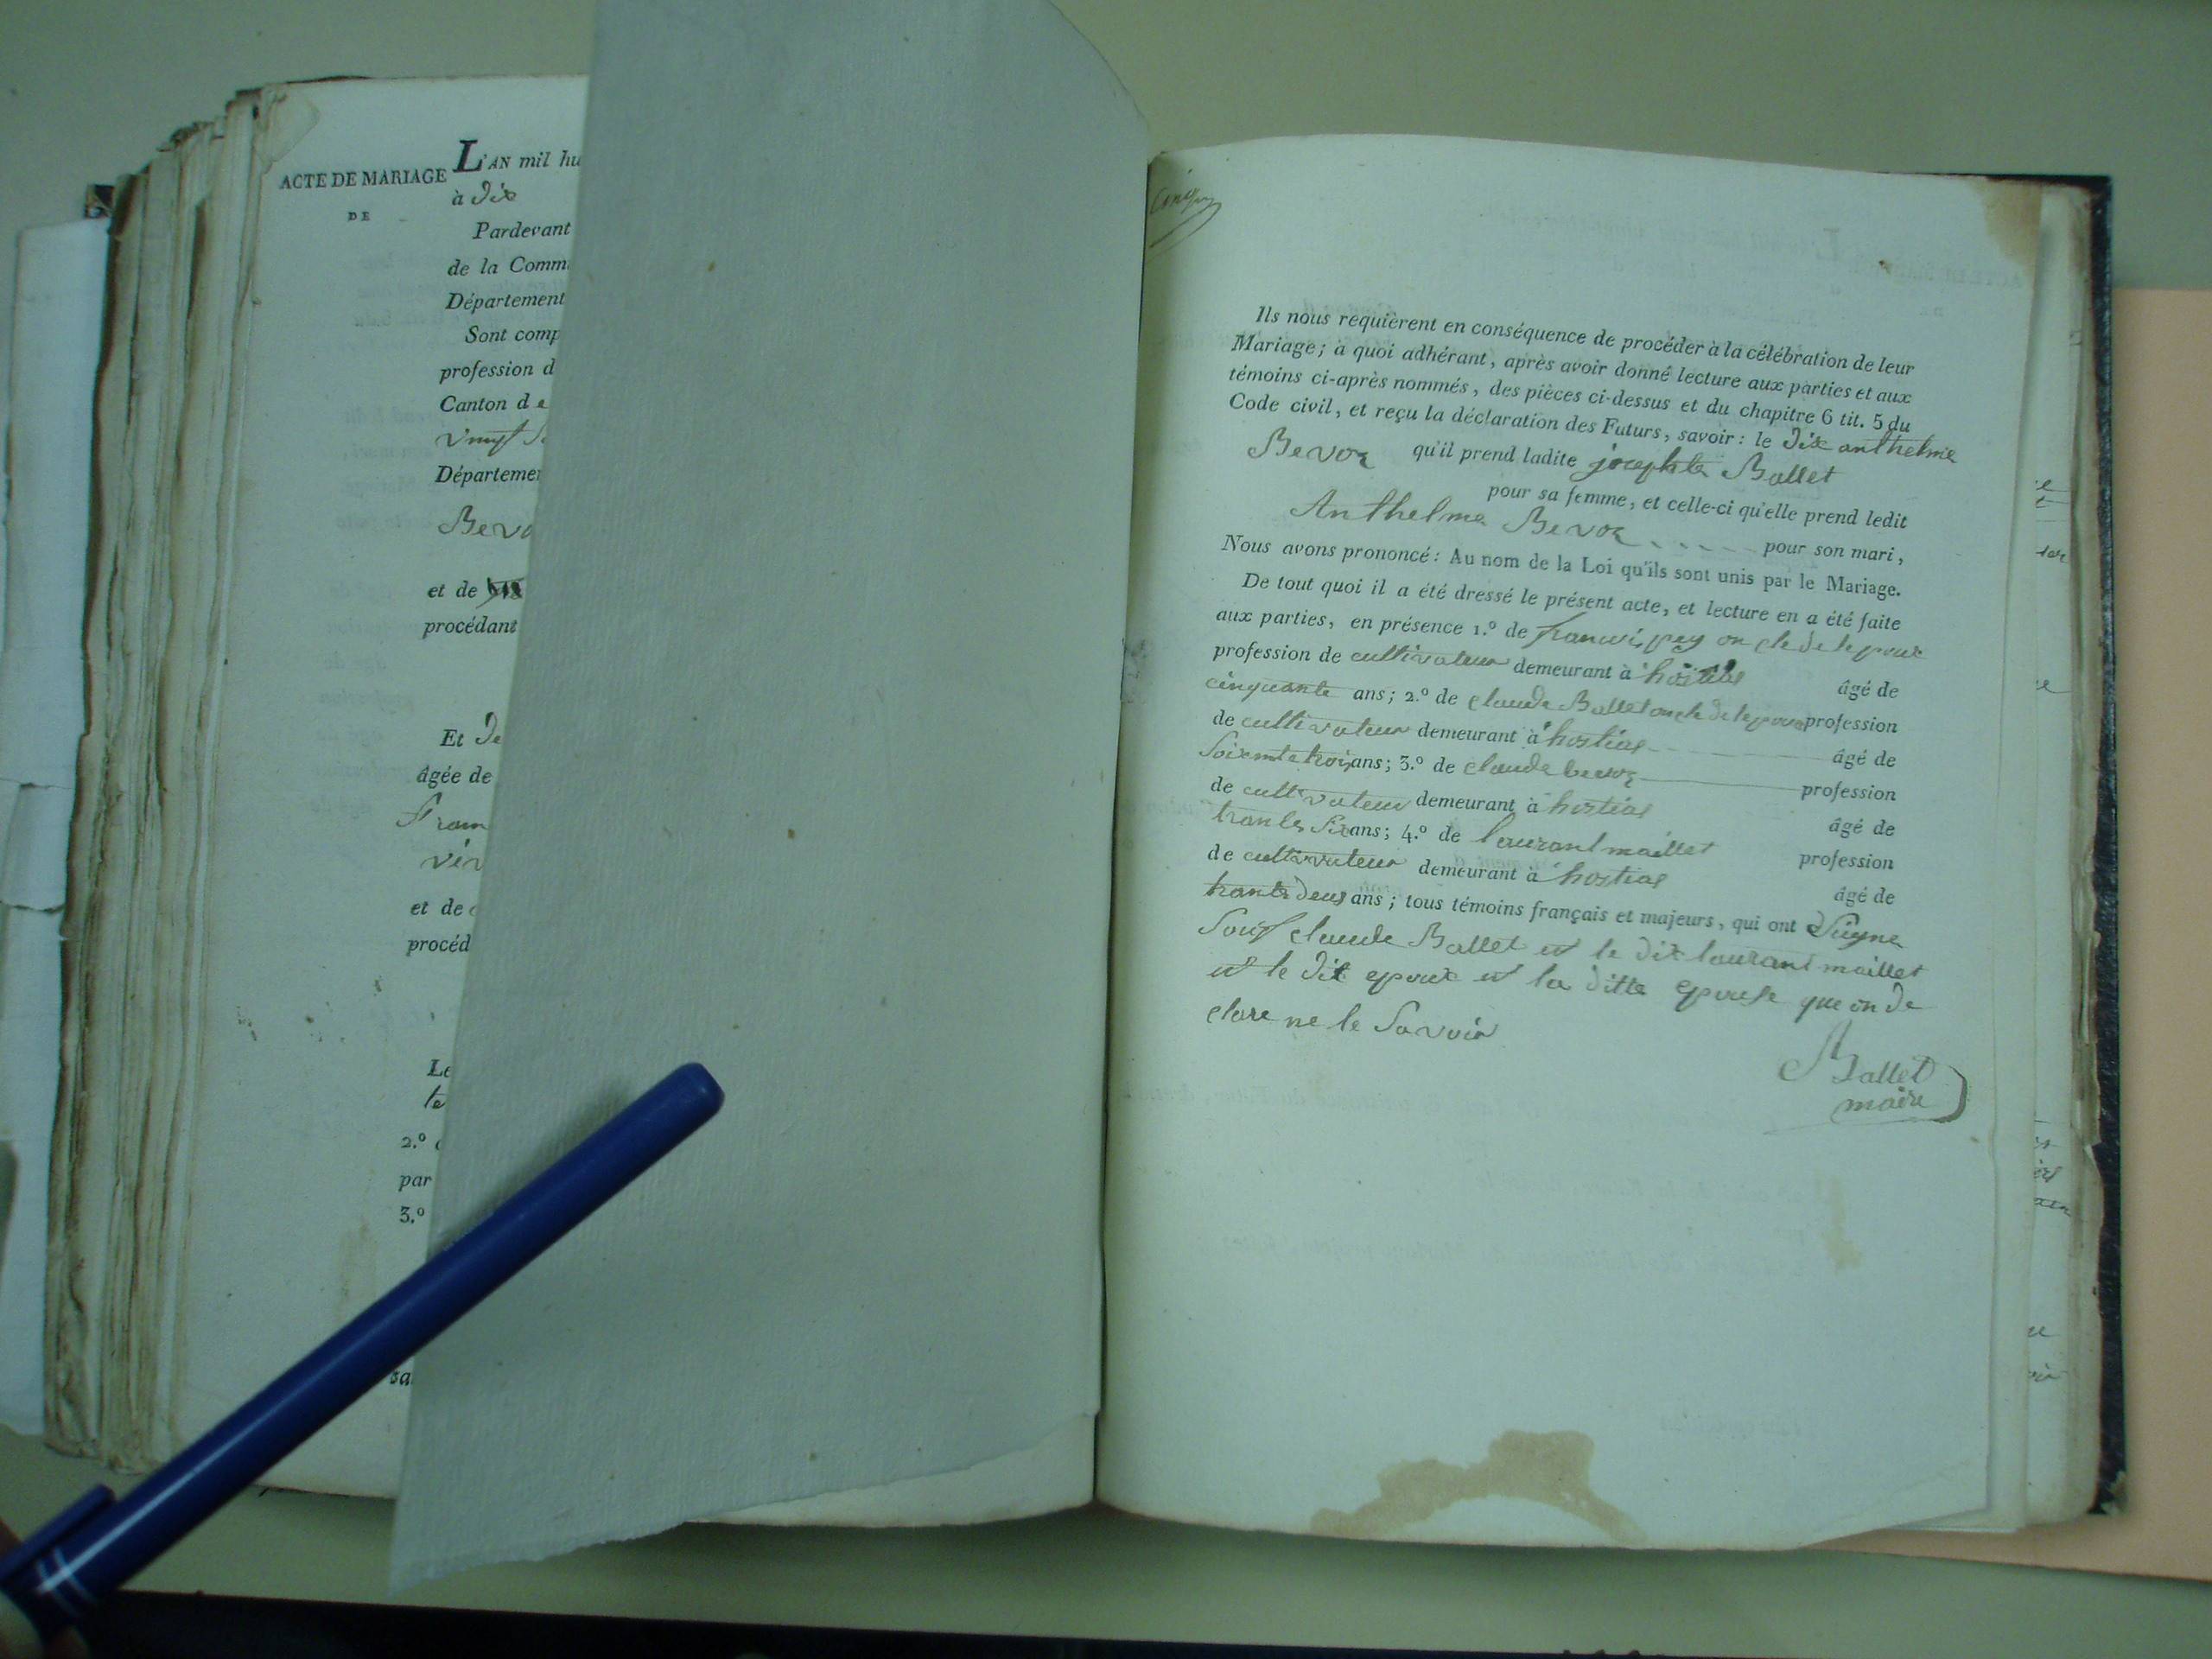 ACTE DE MARIAGE
DE
L'AN mil hu
à dix
Pardevant
de la Comm
Département
Sont comp
profession d
Canton de
vingt
Départemen
Bevo
et de
procédant
Et de
âgée de
fran
et de
procéd
Le
te
2.º
par
3.º
sa
Ils nous requièrent en conséquence de procéder à la célébration de leur
Mariage; à quoi adhérant, après avoir donné lecture aux parties et aux
témoins ci-après nommés, des pièces ci-dessus et du chapitre 6 tit. 5 du
Code civil, et reçu la déclaration des Futurs, savoir: le dix anthelme
Bevoz qu'il prend ladite josephte Ballet
pour sa femme, et celle-ci qu'elle prend ledit
Anthelme Bevoz pour son mari,
Nous avons prononcé: Au nom de la Loi qu'ils sont unis par le Mariage.
De tout quoi il a été dressé le présent acte, et lecture en a été faite
aux parties, en présence 1.º de francois pey on cle de le poux
profession de cultivateur demeurant à hostias âgé de
cinquante ans; 2.º de claude Ballet oncle de le poux profession
de cultivateur demeurant à hostias âgé de
soixante trois ans; 3.º de claude bevoz profession
de cultivateur demeurant à hostias âgé de
trante six ans; 4.º de laurant maillet profession
de cultivateur demeurant à hostias âgé de
trante deus ans; tous témoins français et majeurs, qui ont signe
souf claude Ballet et le dit laurant maillet
et le dit epoux et la ditte epouse que on de
clare ne le savoir
Ballet
maire